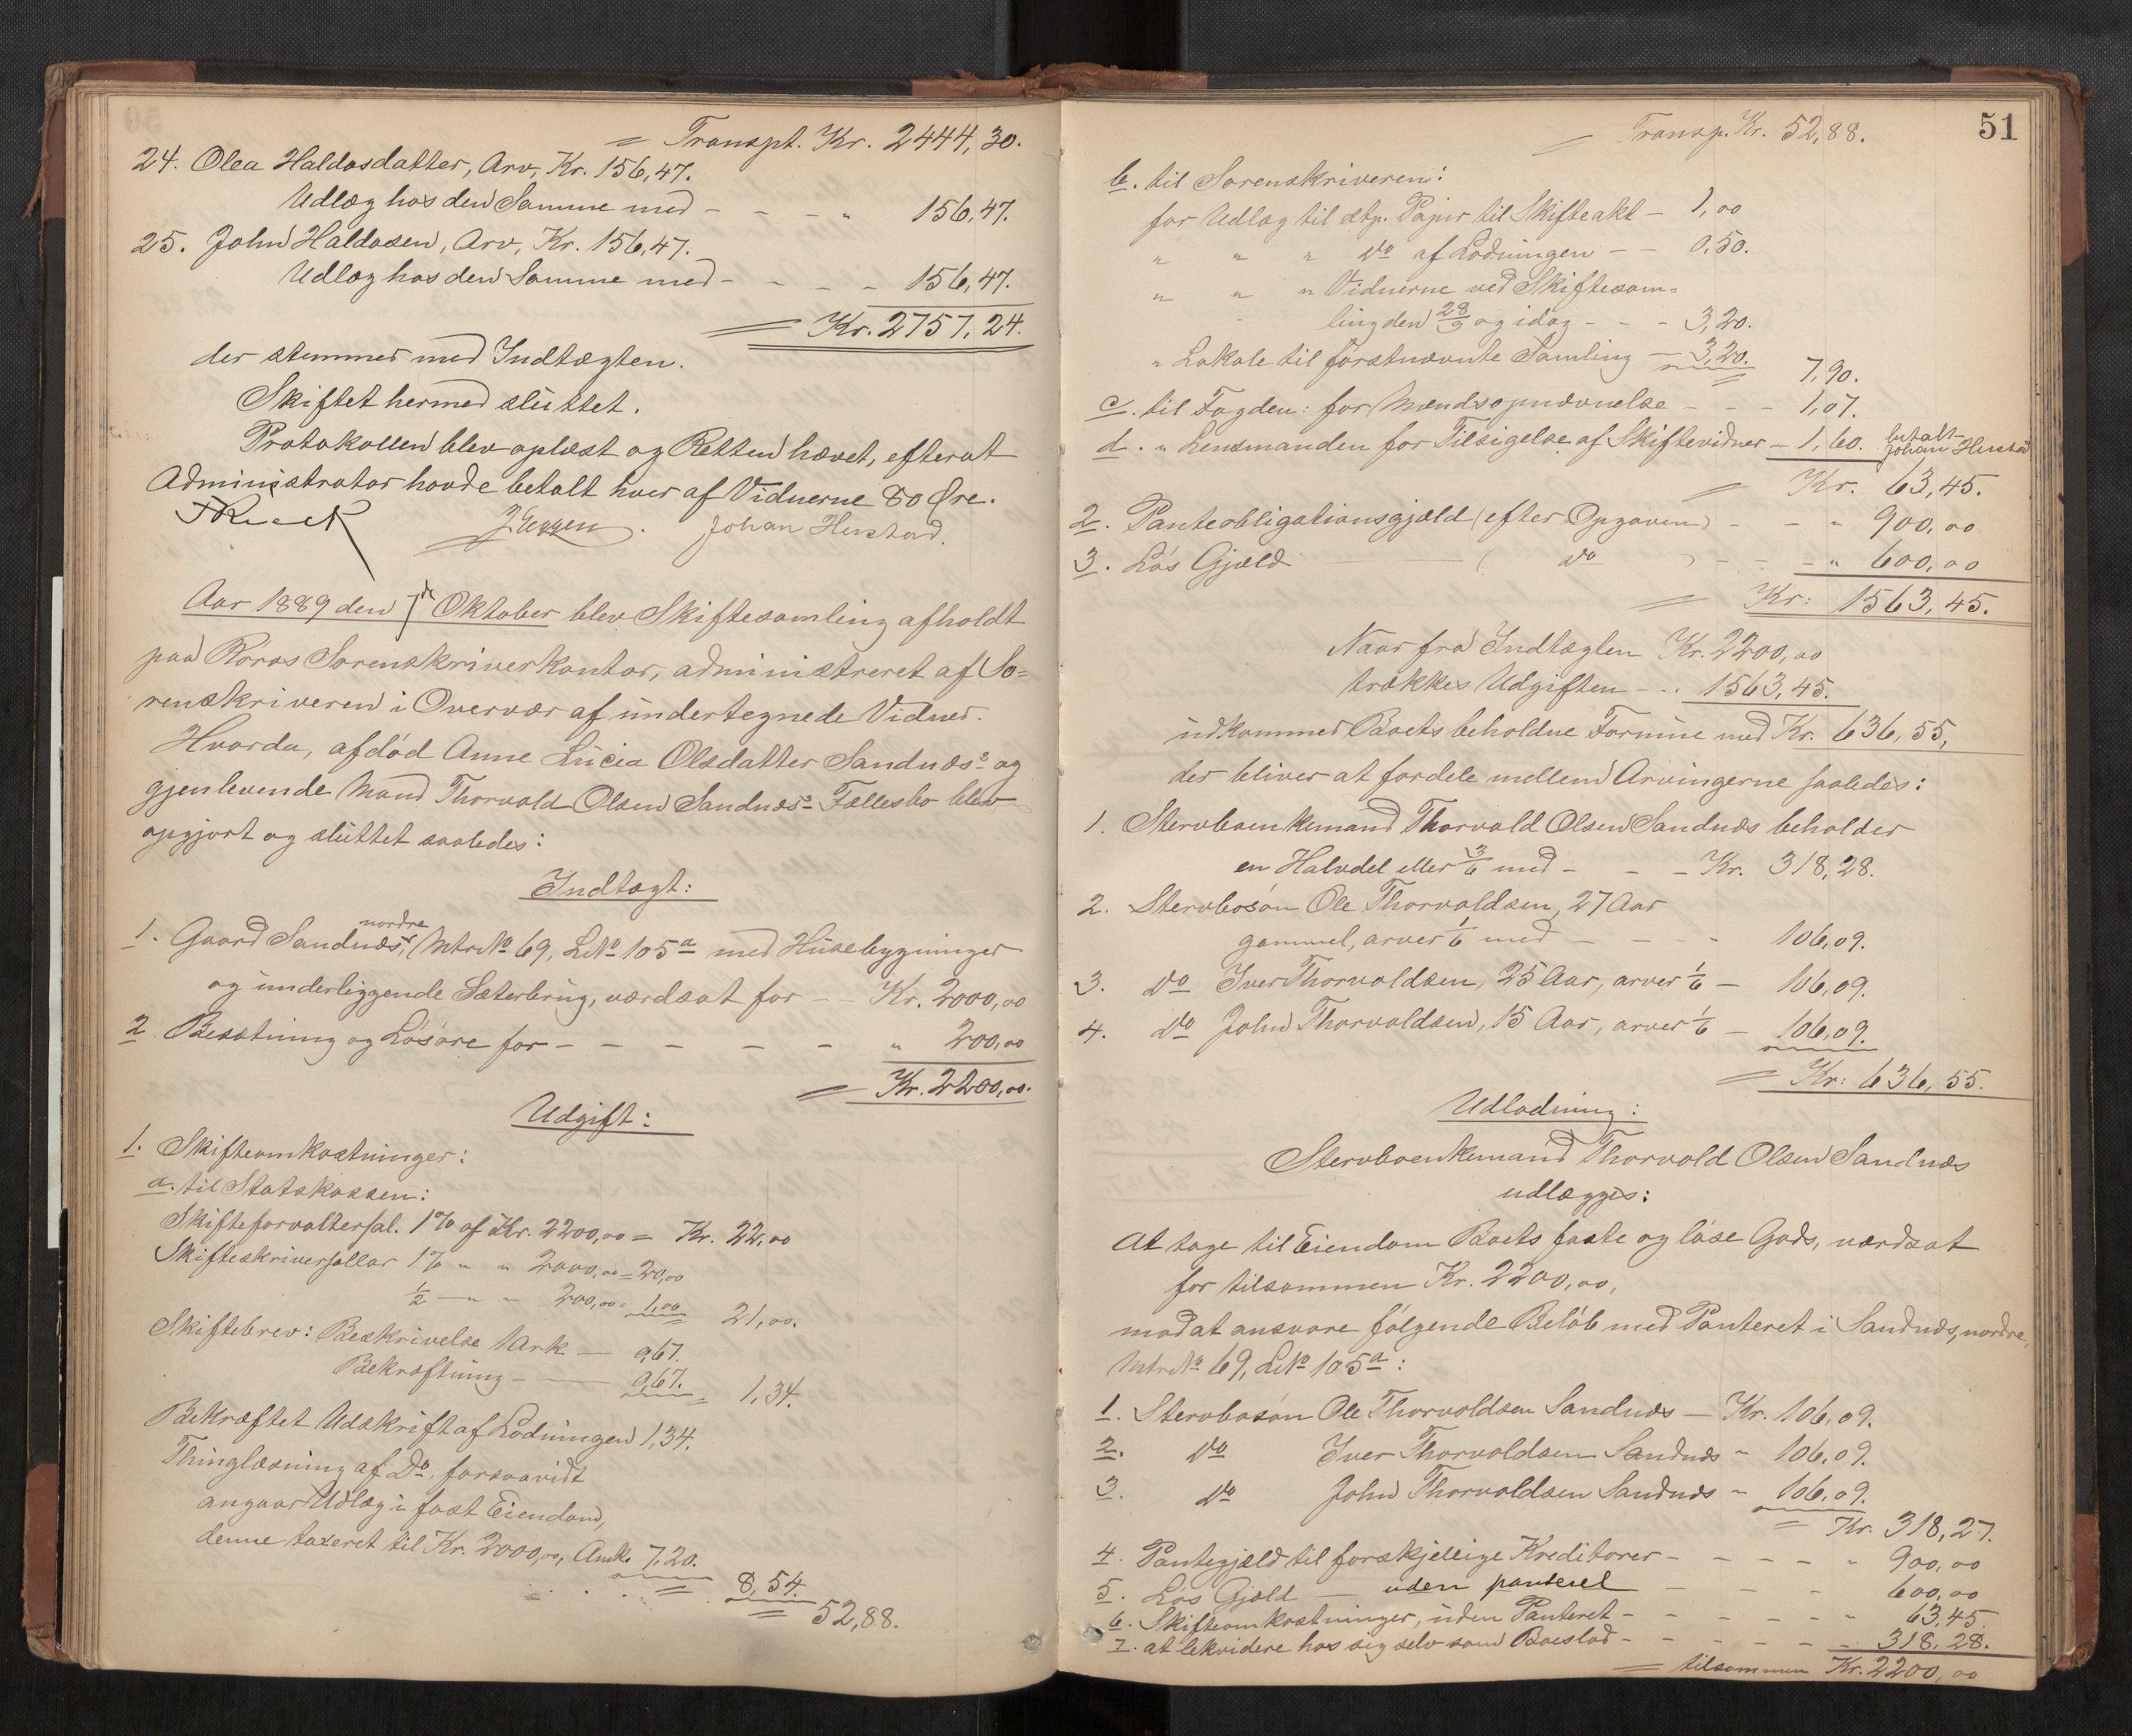 = Transpt. Kr. 2444,30.
24. Olea Haldosdatter, Arv, Kr. 156,47.
Udlæg hos den Samme med - - - „ 156,47.
25. John Haldosen, Arv, Kr. 156,47.
Udlæg hos den Samme med - - - - 156,47.
= Kr. 2757,24.
der stemmer med Indtægten.
Skiftet hermed sluttet.
Protokollen blev oplæst og Retten hævet, efterat
Administrator havde betalt hver af Vidnerne 80 Øre.
Johan Hustad.
Aar 1889 den 7de Oktober blev Skiftesamling afholdt
paa Røros Sorenskriverkontor, administreret af So=
renskriveren i Overvær af undertegnede Vidner.
Hvorda, afdød Anne Lucia Olsdatter Sandnæs's og
gjenlevende Mand Thorvald Olsen Sandnæs's Fællesbo blev
opgjort og sluttet saaledes:
Indtægt:
1. Gaard Sandnæs, nordre, Mtr№ 69, L№ 105a med Husebygninger
og underliggende Sæterbrug, værdsat for - - Kr. 2000,00
2 Besætning og Løsøre for - - - - - - „ 200,00
= Kr. 2200,00.
Udgift:
1. Skifteomkostninger:
a. til Statskassen:
Skifteforvaltersal. 1% af Kr. 2200,00 = Kr. 22,00
Skifteskriversallar 1% „ „ 2000,00 = 20,00
½ — „ „ 200,00 = 1,00 21,00.
Skiftebrev: Beskrivelse 1 Ark — 0,67.
Bekræftning - — 0,67. = 1,34.
Bekræftet Udskrift af Lodningen 1,34.
Thinglæsning af Do, forsaavidt
angaar Udlæg i fast Eiendom,
denne taxeret til Kr. 2000,00, Ank. 7,20.
= 8,54.
= 52,88.
51
= Transp. Kr. 52,88.
b. til Sorenskriveren:
for Udlæg til stp. Papir til Skifteakt - 1,00
„ „ „ Do af Lodningen - - 0,50.
„ „ „ Vidnerne ved Skiftesam=
ling den 28/9 og idag - - - 3,20.
„ Lokale til førstnævnte Samling - 3,20. = 7,90.
c. til Fogden: for Mændsopnævnelse - - - 1,07.
d. „ Lensmanden for Tilsigelse af Skiftevidner - 1,60. betalt Johan Hustad
= Kr. 63,45.
2. Panteobligationsgjæld (efter Opgaven) - - „ 900,00
3. Løs Gjæld — ( Do ) - - - „ 600,00
= Kr: 1563,45.
Naar fra Indtægten Kr. 2200,00
trækkes Udgiften - . . 1563,45.
udkommer Boets beholdne Formue med Kr. 636,55,
der bliver at fordele mellem Arvingerne saaledes:
1. Stervboenkemand Thorvald Olsen Sandnæs beholder
en Halvdel eller 3/6 med - - - Kr. 318,28.
2. Stervbosøn Ole Thorvaldsen, 27 Aar
gammel, arver 1/6 med - - - „ 106,09.
3. Do Iver Thorvaldsen, 25 Aar, arver 1/6 - 106,09.
4. Do John Thorvaldsen, 15 Aar, arver 1/6 - 106,09.
= Kr: 636,55.
Udlodning:
Stervboenkemand Thorvald Olsen Sandnæs
udlægges:
At tage til Eiendom Boets faste og løse Gods, værdsat
for tilsammen Kr. 2200,00,
mod at ansvare følgende Beløb med Panteret i Sandnæs, nordre,
Mtr№ 69, L№ 105a:
1. Stervbosøn Ole Thorvaldsen Sandnæs - Kr. 106,09.
2. Do Iver Thorvaldsen Sandnæs „ 106,09.
3. Do John Thorvaldsen Sandnæs „ 106,09.
= Kr. 318,27.
4. Pantegjæld til forskjellige Kreditorer - - - - „ 900,00
5. Løs Gjæld — uden panteret - - - 600,00
6. Skifteomkostninger, uden Panteret - - - - - „ 63,45
7. at lekvidere hos sig selv som Boeslod - - - - - - 318,28.
= tilsammen Kr. 2200,00